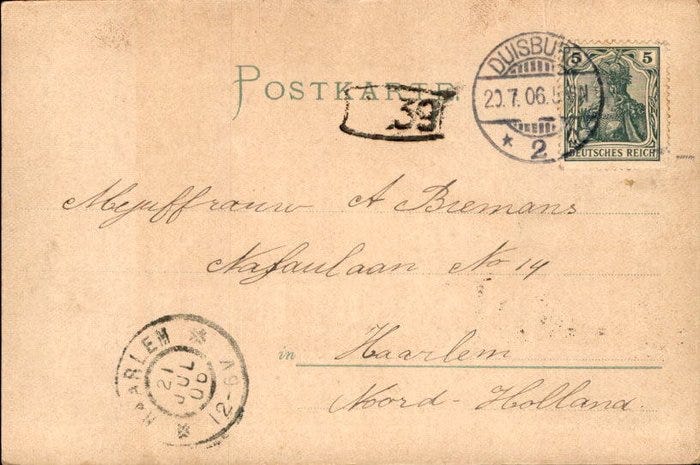 POSTKARTE
39
DUISBURG
20.7.06.
* 2
5 5
DEUTSCHES REICH
Mejuffrouw A Bremans
No 14
in Haarlem
Nord-Holland.
HAARLEM
21
JUL
06
12-6